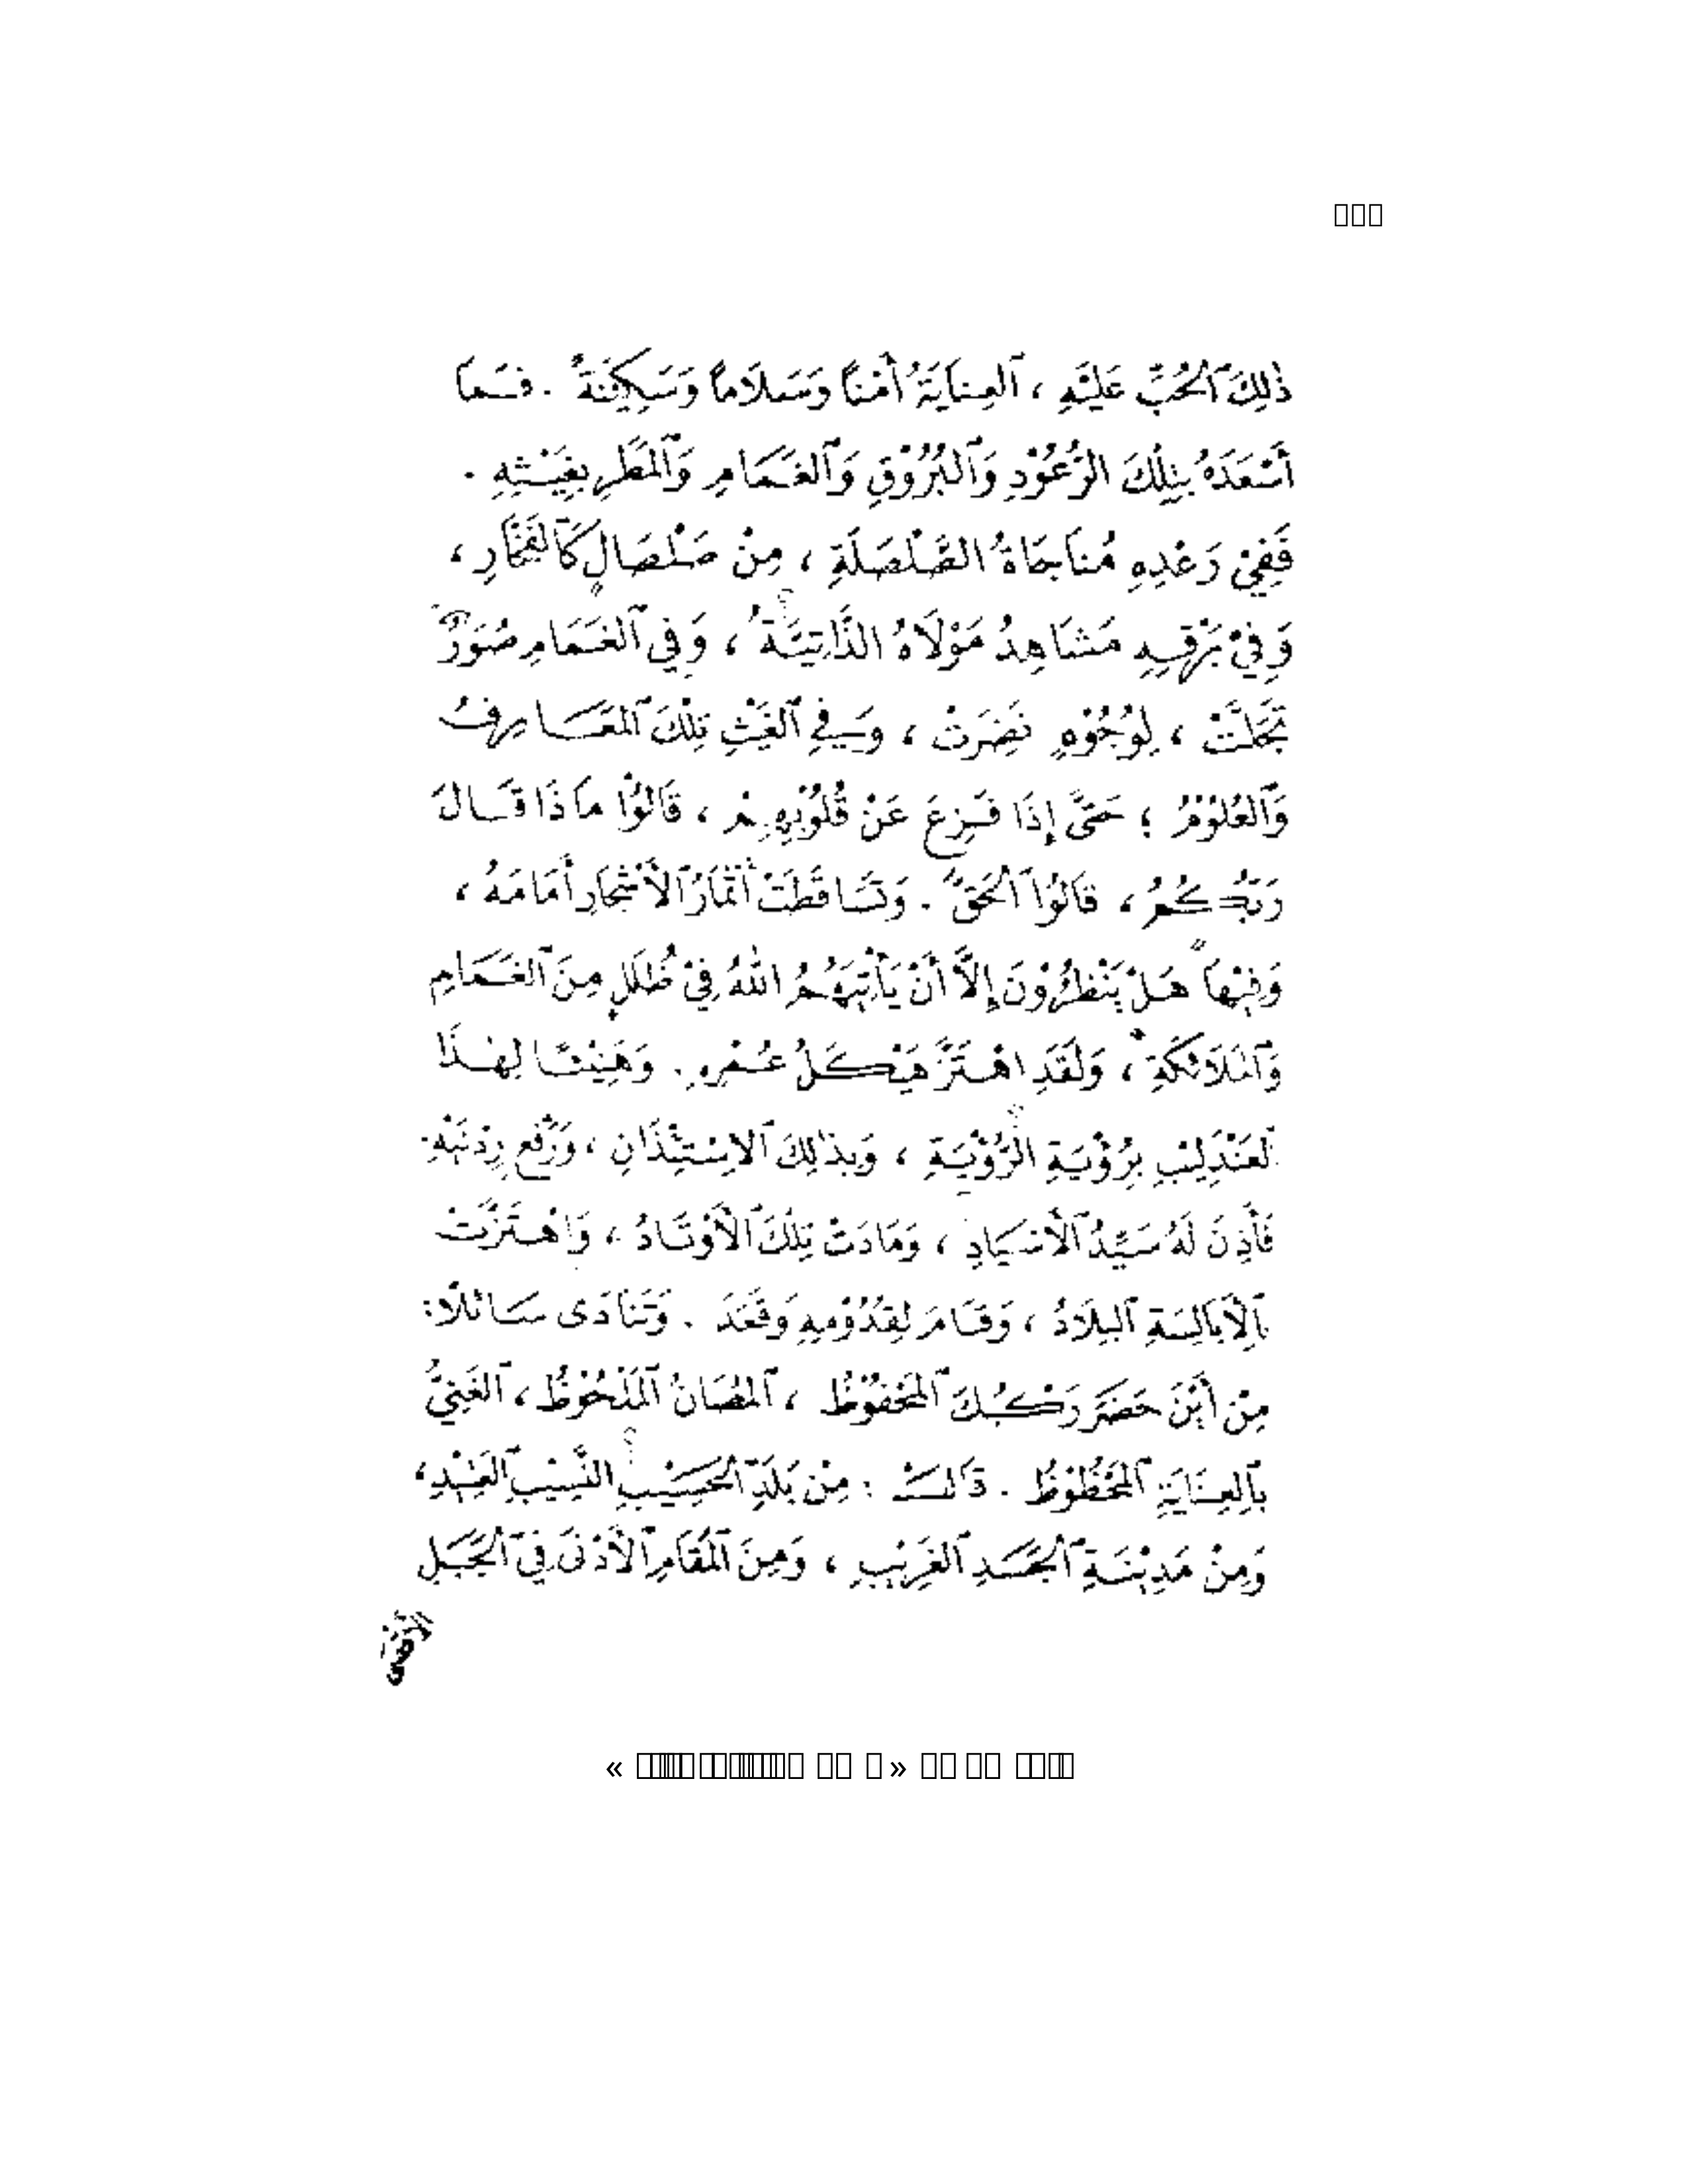 ذٰلِكَ ٱلْحُبُّ عَلَيْهِ ، ٱلْعِنَايَةُ أَمْنًا وَسَلَامًا وَسَكِيْنَةً . فَمَا
أَسْعَدَهُ بِتِلْكَ الرُّعُوْدِ وَٱلْبُرُوْقِ وَٱلْغَمَامِ وَٱلْمَطَرِ بِغَيْثِهِ .
فَفِيْ رَعْدِهِ مُنَاجَاةُ الصَّلْصَلَةِ ، مِنْ صَلْصَالٍ كَٱلْفَخَّارِ ،
وَفِيْ بَرْقِهِ مَشَاهِدُ مَوْلَاهُ الذَّاتِيَّةُ ، وَفِي ٱلْغَمَامِ صُوَرٌ
تَجَلَّتْ ، لِوُجُوْهٍ نَضِرَتْ ، وَفِي ٱلْغَيْثِ تِلْكَ ٱلْمَعَارِفُ
وَٱلْعُلُوْمُ ؛ حَتَّى إِذَا فُزِعَ عَنْ قُلُوْبِهِمْ ، قَالُوْا مَاذَا قَالَ
رَبُّكُمْ ، قَالُوْا ٱلْحَقَّ . وَتَسَاقَطَتْ أَثْمَارُ ٱلْأَشْجَارِ أَمَامَهُ ،
وَفِيْهَا هَلْ يَنْظُرُوْنَ إِلَّا أَنْ يَأْتِيَهُمُ اللهُ فِيْ ظُلَلٍ مِنَ ٱلْغَمَامِ
وَٱلْمَلَائِكَةِ ، وَلَقَدِ اهْتَزَّ هَيْكَلُ عُمْرِهِ . وَهَنِيْئًا لِهٰذَا
ٱلْعَنْدَلِيْبِ بِرُؤْيَةِ الرُّؤْيَةِ ، وَبِذٰلِكَ ٱلِاسْتِئْذَانِ ، وَرَفْعِ رُتْبَتِهِ
فَأَذِنَ لَهُ سَيِّدُ ٱلْأَسْيَادِ ، وَمَادَتْ تِلْكَ ٱلْأَوْتَادُ ، وَاهْتَزَّتْ
الْبِلَادُ ، وَقَامَ لِقُدُوْمِهِ وَقَعَدَ . وَتَنَادَى سَائِلًا :
مِنْ أَيْنَ حَضَرَ رَكْبُكَ ٱلْمَحْفُوْظُ ، ٱلْمُصَانُ ٱلْمَلْحُوْظُ ، ٱلْغَنِيُّ
بِٱلْعِنَايَةِ ٱلْمَحْظُوْظُ . قَالَ : مِنْ بَلَدِ ٱلْحَسِيْبِ النَّسِيْبِ
وَمِنْ مَدِيْنَةِ ٱلْجَسَدِ ٱلْغَرِيْبِ ، وَمِنَ ٱلْمَقَامِ ٱلْأَدْنَى فِي ٱلْجَبَلِ